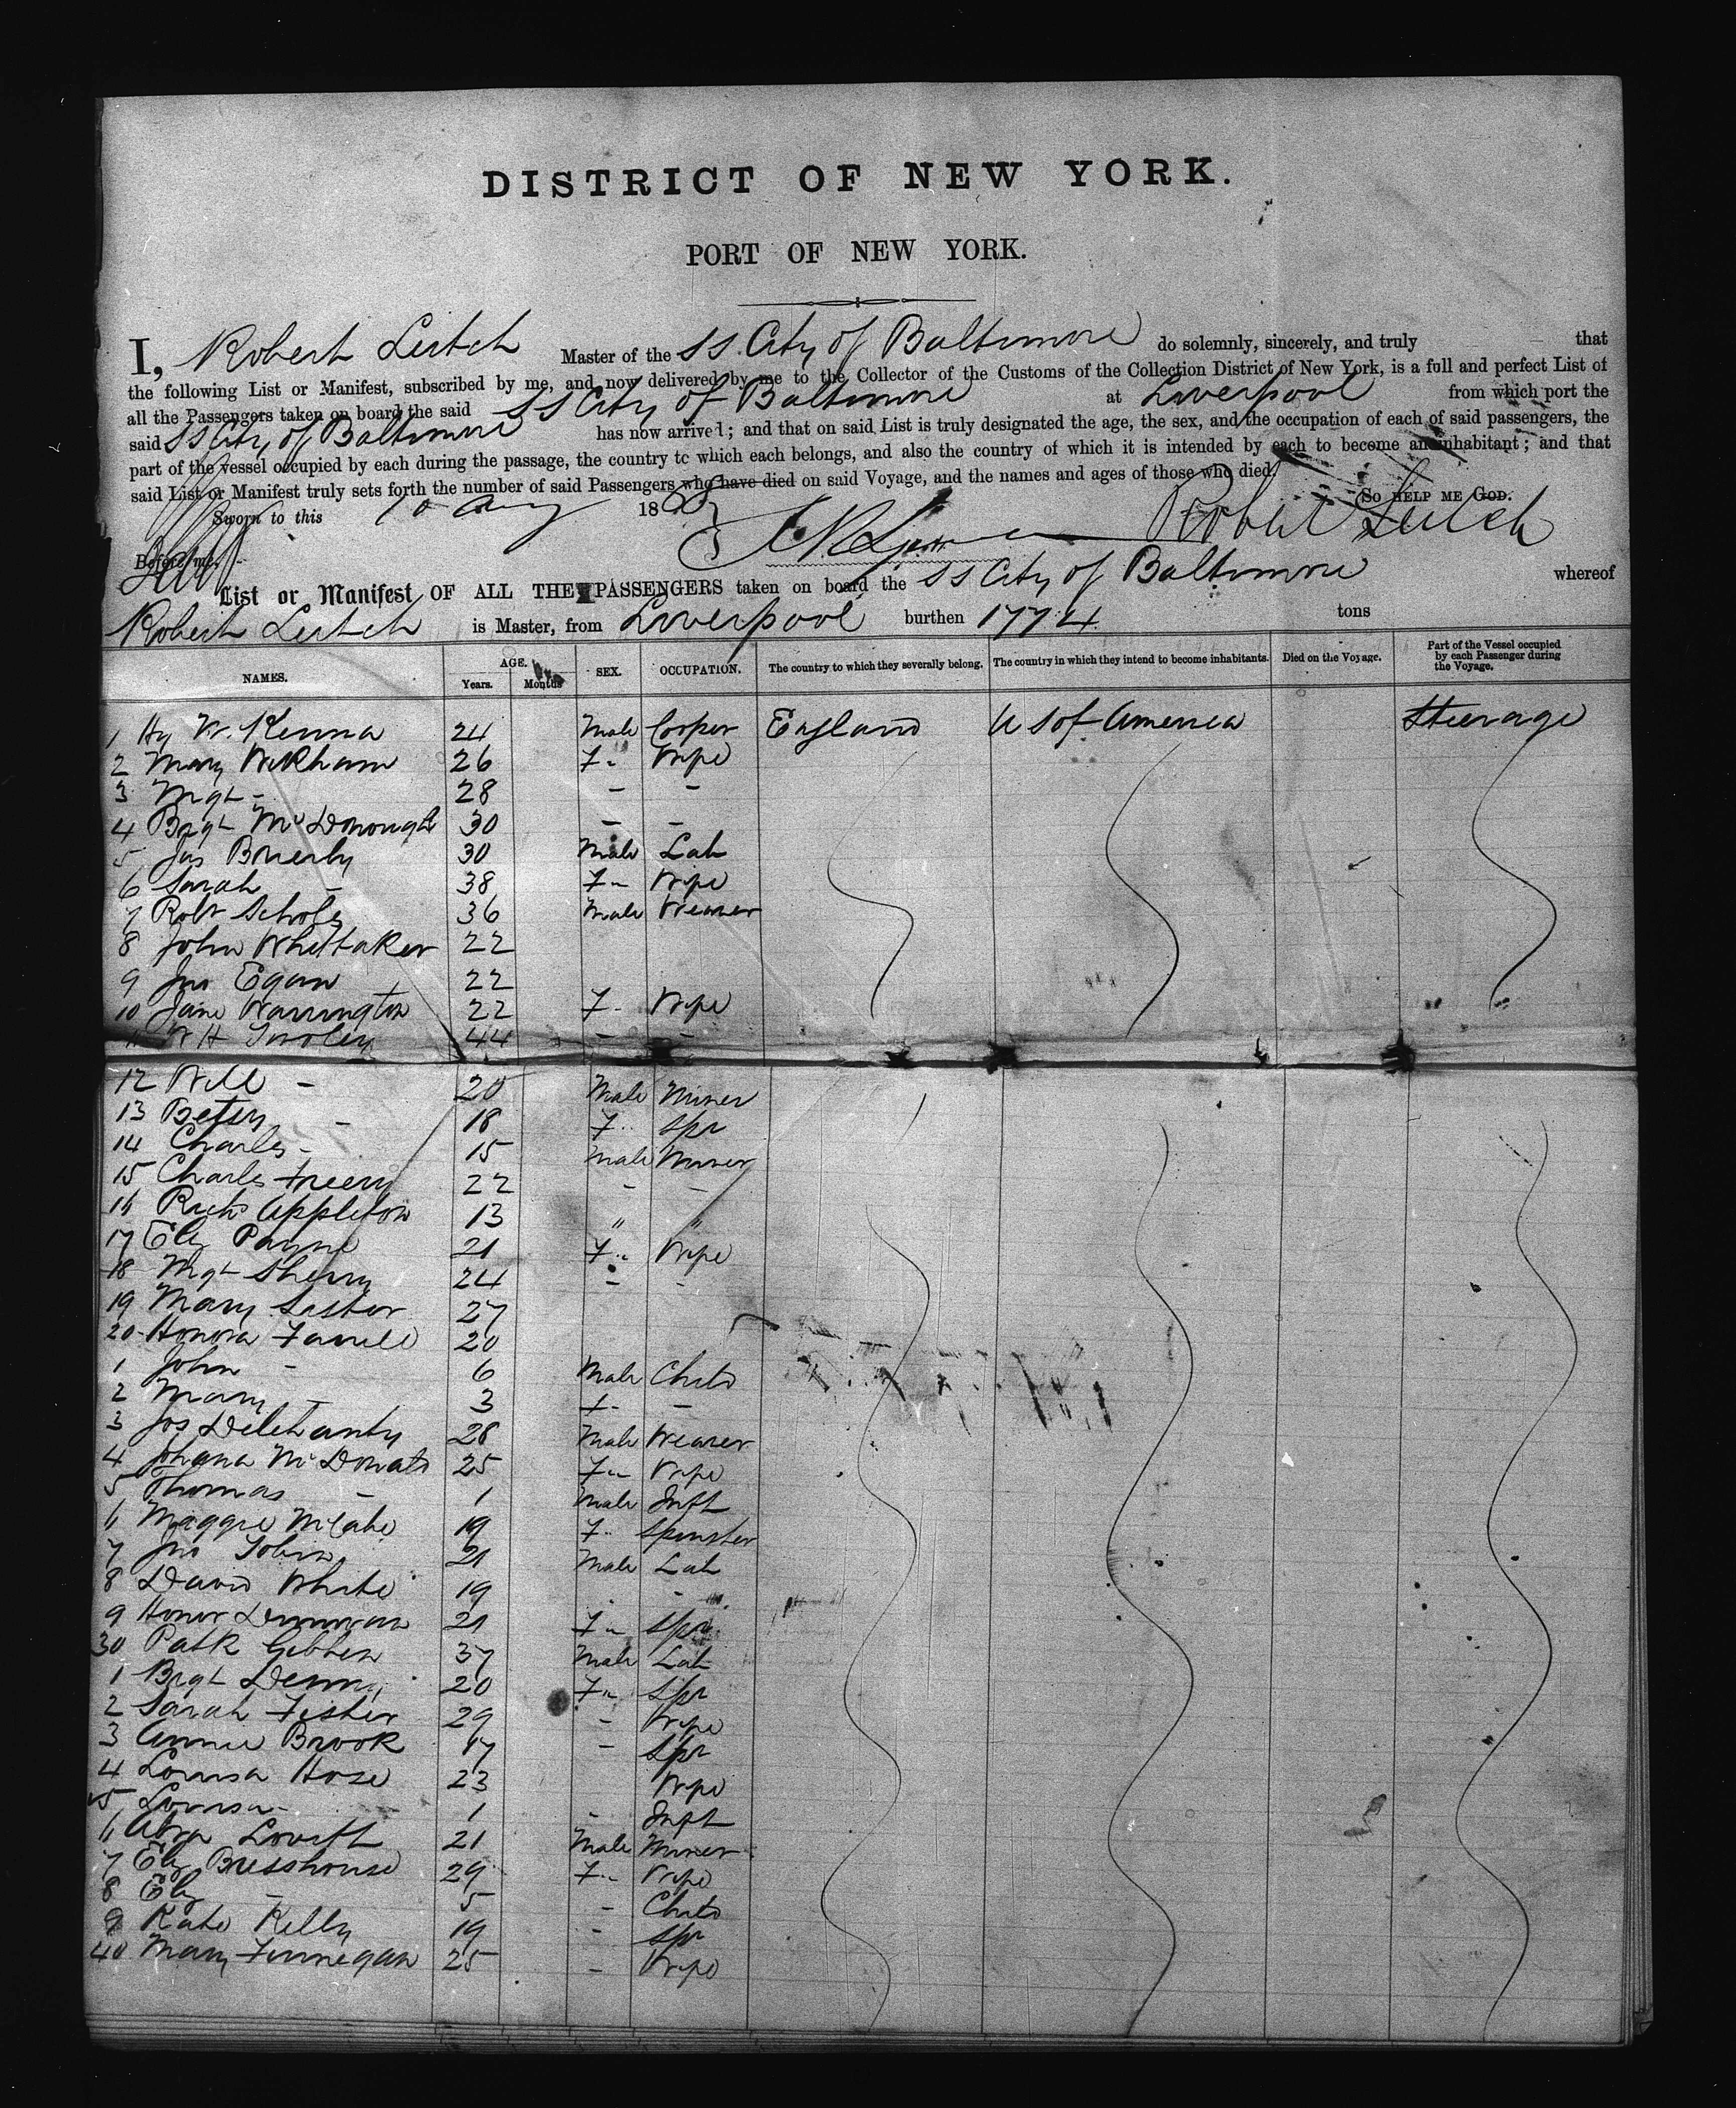 DISTRICT OF NEW YORK.
PORT OF NEW YORK.
I, Robert Leitch Master of the SS. City of Baltimore do solemnly, sincerely, and truly that
the following List or Manifest, subscribed by me, and now delivered by me to the Collector of the Customs of the Collection District of New York, is a full and perfect List of
all the Passengers taken on board the said SS City of Baltimore at Liverpool from which port the
said SS City of Baltimore has now arrived; and that on said List is truly designated the age, the sex, and the occupation of each of said passengers, the
part of the vessel occupied by each during the passage, the country to which each belongs, and also the country of which it is intended by each to become an inhabitant; and that
said List or Manifest truly sets forth the number of said Passengers who have died on said Voyage, and the names and ages of those who died.
So HELP ME GOD.
Sworn to this 10 Aug 186 Robert Leitch
Before me.
List or Manifest OF ALL THE PASSENGERS taken on board the SS City of Baltimore whereof
Robert Leitch is Master, from Liverpool burthen 1774 tons
NAMES. AGE. Years. Months SEX. OCCUPATION. The country to which they severally belong. The country in which they intend to become inhabitants. Died on the Voyage. Part of the Vessel occupied by each Passenger during the Voyage.
1 Hy W. Kenna 24 Male Cooper England U S of America Steerage
2 Mary Wickham 26 F " Wife
3 Mgt - 28 - -
4 Brgt McDonough 30 - -
5 Jas Brierly 30 Male Lab
6 Sarah - 38 F " Wife
7 Robt Scholes 36 Male Weaver
8 John Whittaker 22
9 Jno Egan 22
10 Jane Warrington 22 F " Wife
11 W H 44 - -
12 Will - 20 Male Miner
13 Betsy - 18 F " Spr
14 Charles - 15 Male Miner
15 Charles 22 - -
16 Richd Appleton 13 " "
17 Eliz Payne 21 F " Wife
18 Mgt Sherry 24 - -
19 Mary 27
20 Honora Farrell 20
1 John - 6 Male Child
2 Mary - 3 F - -
3 Jos Delehanty 28 Male Weaver
4 Johana McDonald 25 F " Wife
5 Thomas - 1 Male Inft
6 Maggie McCabe 19 F " Spinster
7 Jno Tobin 21 Male Lab
8 David White 19 - -
9 Honor 21 F " Spr
30 Patk Gibben 37 Male Lab
1 Brgt 20 F " Spr
2 Sarah Fisher 29 - Wife
3 Annie Brook 17 - Spr
4 Louisa Hose 23 Wife
5 Louisa - 1 - Inft
6 Abra Lovitt 21 Male Miner
7 Eliz 29 F " Wife
8 Eliz - 5 - Child
9 Kate Kelly 19 - Spr
40 Mary Finnegan 25 - Wife